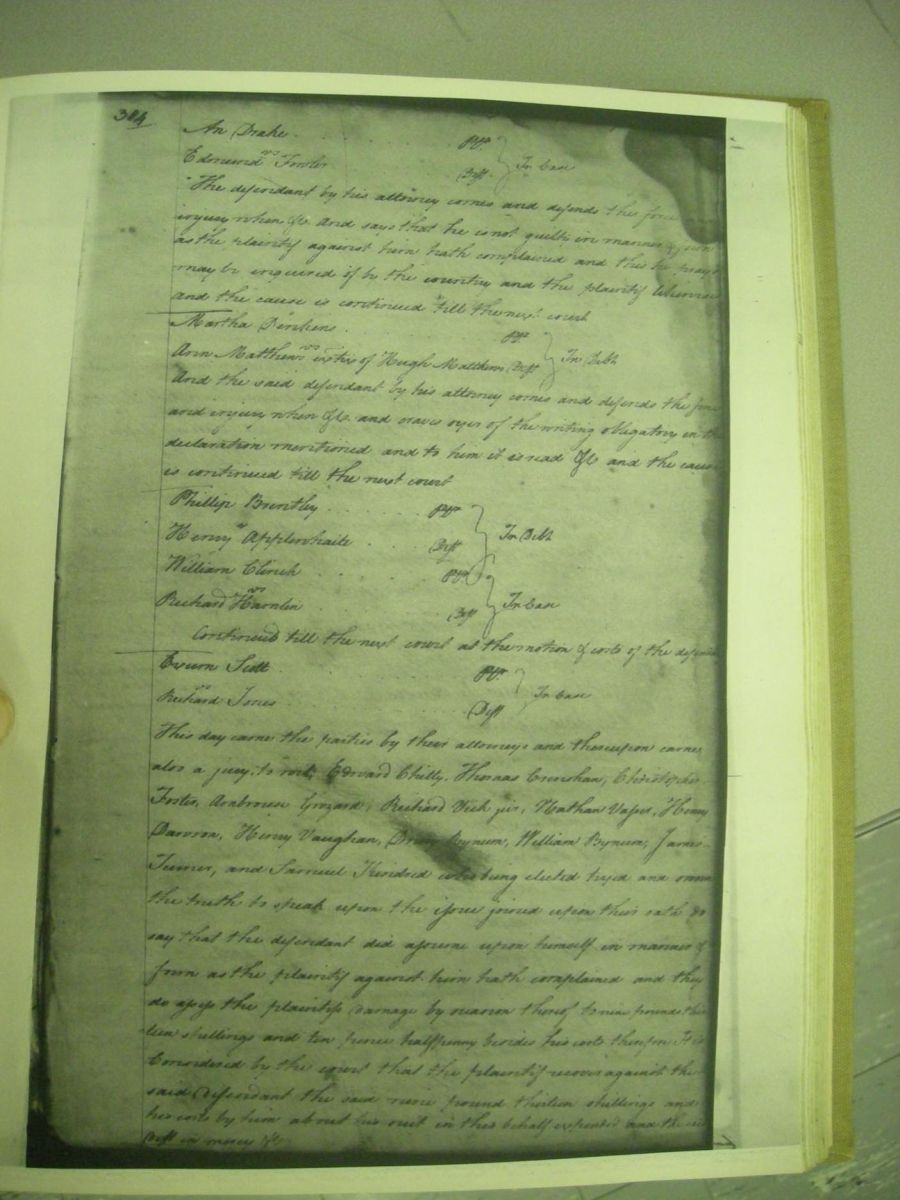 384
An Drake . . . Pltf
vs In Case
Edmund Fowler Deft
The defendant by his attorney comes and defends the force and
injury when &c. And says that he is not guilty in manner & form
as the plaintif against him hath complained and this he prays
may be inquired of by the country and the plaintif likewise
and the cause is continued till the next court
Martha Denkens . . . Pltf
vs In Debt
Ann Matthews extrx of Hugh Matthews Deft
And the said defendant by his attorney comes and defends the force
and injury when &c. and craves oyer of the writing obligatory in the
declaration mentioned and to him it is read &c and the cause
is continued till the next court
Phillip Brantley . . . Pltf
vs In Debt
Henry Applewhaite . . . Deft
William Clinch . . . Pltf
vs In Case
Richard Hamlin . . . Deft
Continued till the next court at the motion & costs of the defendant
Exum Scott . . . Pltf
vs In Case
Richard Jones . . . Deft
This day came the parties by their attorneys and thereupon came
also a jury to wit, Edward Chitty, Thomas Crenshaw, Christopher
Foster, Ambrouse Grizard, Richard Vick jur, Nathan Vasser, Henry
Dawson, Henry Vaughan, Drury Bynum, William Bynum, James
Turner, and Samuel Kindred who being elected tryed and sworn
the truth to speak upon the issue joined upon their oath do
say that the defendant did assume upon himself in manner &
form as the plaintif against him hath complained and they
do assess the plaintifs damage by reason thereof to nine pounds thir
teen shillings and ten pence halfpenny besides his costs therefore It is
Considered by the court that the plaintif recover against the
said Defendant the said nine pound thirteen shillings and
his costs by him about his suit in this behalf expended and the said
Deft in mercy &c